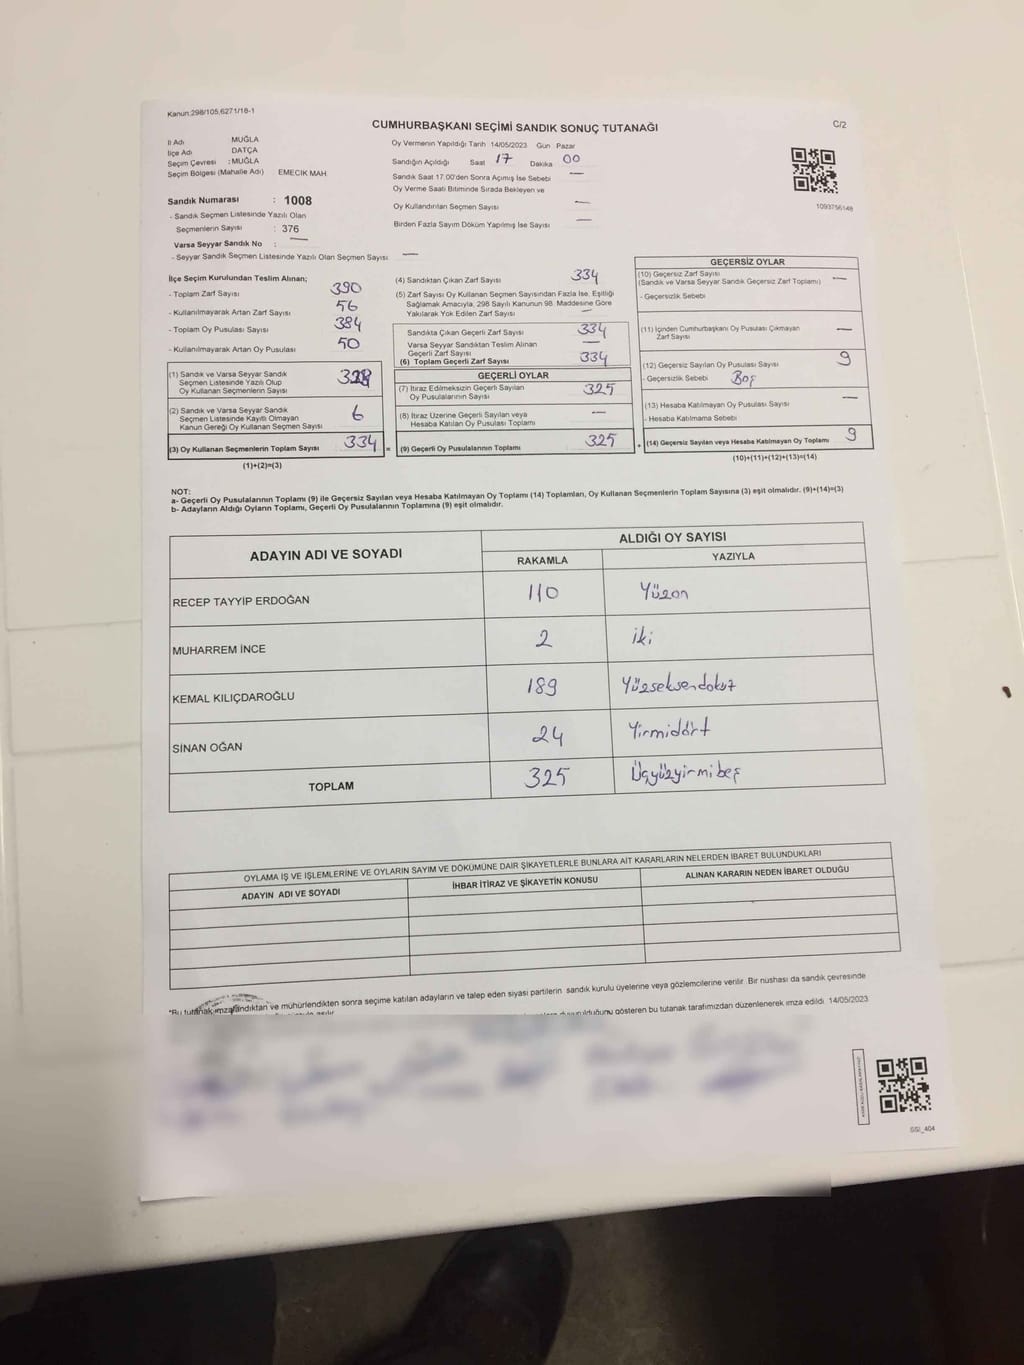 Kanun:298/105,6271/18-1
CUMHURBAŞKANI SEÇİMİ SANDIK SONUÇ TUTANAĞI
C/2
İl Adı MUĞLA
İlçe Adı DATÇA
Seçim Çevresi : MUĞLA
Seçim Bölgesi (Mahalle Adı) EMECİK MAH.
Sandık Numarası : 1008
- Sandık Seçmen Listesinde Yazılı Olan
Seçmenlerin Sayısı : 376
Varsa Seyyar Sandık No : —
- Seyyar Sandık Seçmen Listesinde Yazılı Olan Seçmen Sayısı: —
Oy Vermenin Yapıldığı Tarih 14/05/2023 Gün Pazar
Sandığın Açıldığı Saat 17 Dakika 00
Sandık Saat 17.00'den Sonra Açımış İse Sebebi —
Oy Verme Saati Bitiminde Sırada Bekleyen ve
Oy Kullandırılan Seçmen Sayısı —
Birden Fazla Sayım Döküm Yapılmış İse Sayısı —
1093756148
İlçe Seçim Kurulundan Teslim Alınan;
- Toplam Zarf Sayısı 390
- Kullanılmayarak Artan Zarf Sayısı 56
- Toplam Oy Pusulası Sayısı 384
- Kullanılmayarak Artan Oy Pusulası 50
(1) Sandık ve Varsa Seyyar Sandık
Seçmen Listesinde Yazılı Olup
Oy Kullanan Seçmenlerin Sayısı 328
(2) Sandık ve Varsa Seyyar Sandık
Seçmen Listesinde Kayıtlı Olmayan
Kanun Gereği Oy Kullanan Seçmen Sayısı 6
(3) Oy Kullanan Seçmenlerin Toplam Sayısı 334 =
(1)+(2)=(3)
(4) Sandıktan Çıkan Zarf Sayısı 334
(5) Zarf Sayısı Oy Kullanan Seçmen Sayısından Fazla İse, Eşitliği
Sağlamak Amacıyla, 298 Sayılı Kanunun 98. Maddesine Göre
Yakılarak Yok Edilen Zarf Sayısı —
Sandıkta Çıkan Geçerli Zarf Sayısı 334
Varsa Seyyar Sandıktan Teslim Alınan
Geçerli Zarf Sayısı —
(6) Toplam Geçerli Zarf Sayısı 334
GEÇERLİ OYLAR
(7) İtiraz Edilmeksizin Geçerli Sayılan
Oy Pusulalarının Sayısı 325
(8) İtiraz Üzerine Geçerli Sayılan veya
Hesaba Katılan Oy Pusulası Toplamı —
(9) Geçerli Oy Pusulalarının Toplamı 325 +
GEÇERSİZ OYLAR
(10) Geçersiz Zarf Sayısı
(Sandık ve Varsa Seyyar Sandık Geçersiz Zarf Toplamı) —
- Geçersizlik Sebebi
(11) İçinden Cumhurbaşkanı Oy Pusulası Çıkmayan
Zarf Sayısı —
(12) Geçersiz Sayılan Oy Pusulası Sayısı 9
- Geçersizlik Sebebi Boş
(13) Hesaba Katılmayan Oy Pusulası Sayısı —
- Hesaba Katılmama Sebebi
(14) Geçersiz Sayılan veya Hesaba Katılmayan Oy Toplamı 9
(10)+(11)+(12)+(13)=(14)
NOT:
a- Geçerli Oy Pusulalarının Toplamı (9) ile Geçersiz Sayılan veya Hesaba Katılmayan Oy Toplamı (14) Toplamları, Oy Kullanan Seçmenlerin Toplam Sayısına (3) eşit olmalıdır. (9)+(14)=(3)
b- Adayların Aldığı Oyların Toplamı, Geçerli Oy Pusulalarının Toplamına (9) eşit olmalıdır.
ADAYIN ADI VE SOYADI
ALDIĞI OY SAYISI
RAKAMLA YAZIYLA
RECEP TAYYİP ERDOĞAN 110 Yüzon
MUHARREM İNCE 2 iki
KEMAL KILIÇDAROĞLU 189 Yüzseksendokuz
SİNAN OĞAN 24 Yirmidört
TOPLAM 325 Üçyüzyirmibeş
OYLAMA İŞ VE İŞLEMLERİNE VE OYLARIN SAYIM VE DÖKÜMÜNE DAİR ŞİKAYETLERLE BUNLARA AİT KARARLARIN NELERDEN İBARET BULUNDUKLARI
ADAYIN ADI VE SOYADI İHBAR İTİRAZ VE ŞİKAYETİN KONUSU ALINAN KARARIN NEDEN İBARET OLDUĞU
*Bu tutanak imzalandıktan ve mühürlendikten sonra seçime katılan adayların ve talep eden siyasi partilerin sandık kurulu üyelerine veya gözlemcilerine verilir. Bir nüshası da sandık çevresinde
duyurulduğunu gösteren bu tutanak tarafımızdan düzenlenerek imza edildi. 14/05/2023
SSI_404